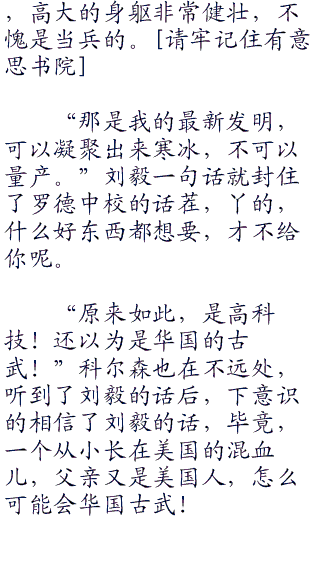 ，高大的身躯非常健壮，不
愧是当兵的。[请牢记住有意
思书院]
“那是我的最新发明，
可以凝聚出来寒冰，不可以
量产。”刘毅一句话就封住
了罗德中校的话茬，丫的，
什么好东西都想要，才不给
你呢。
“原来如此，是高科
技！还以为是华国的古
武！”科尔森也在不远处，
听到了刘毅的话后，下意识
的相信了刘毅的话，毕竟，
一个从小长在美国的混血
儿，父亲又是美国人，怎么
可能会华国古武！